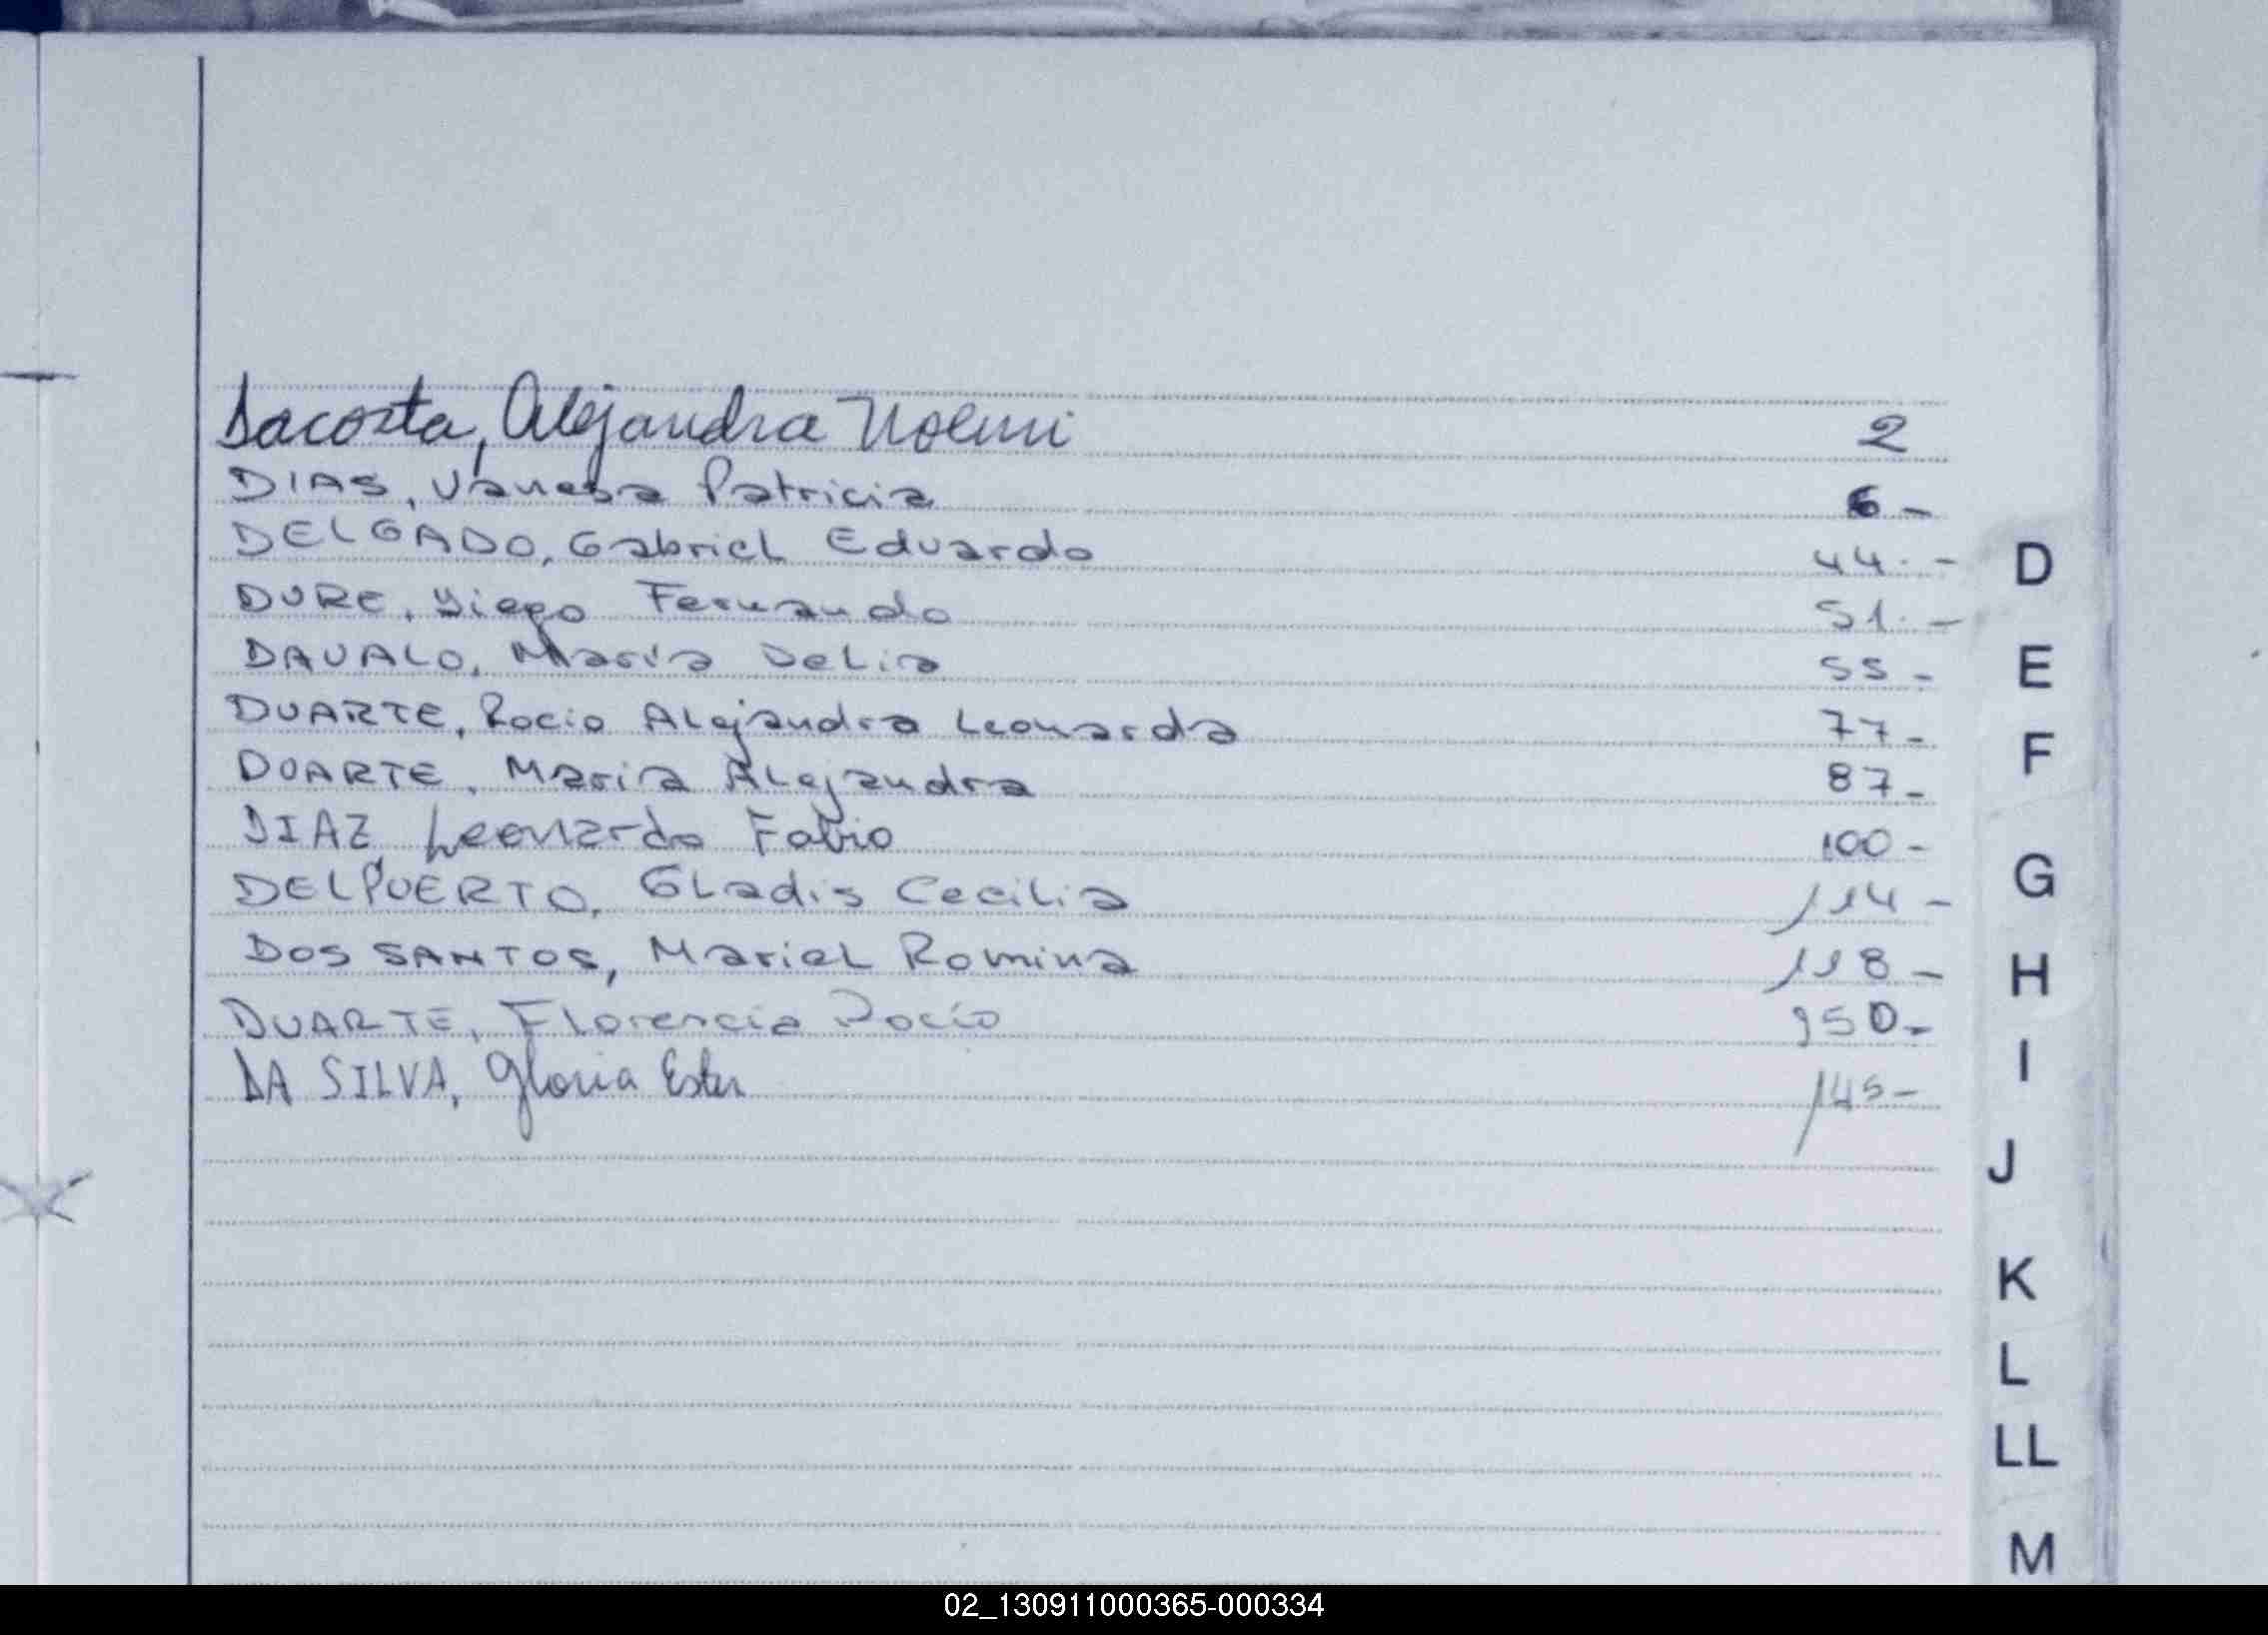 Dacosta, Alejandra Noemi 2
DIAS, Vanesa Patricia 6-
DELGADO, Gabriel Eduardo 44.-
D
DURE, Diego Fernando 51.-
DAVALO, Maria Delia 55-
E
DUARTE, Rocio Alejandra Leonarda 77-
F
DUARTE, Maria Alejandra 87-
DIAZ Leonardo Fabio 100-
G
DELPUERTO, Gladis Cecilia 114-
DOS SANTOS, Mariel Romina 118-
H
DUARTE, Florencia Rocío 150-
I
DA SILVA, Gloria Ester 145-
J
K
L
LL
M
02_130911000365-000334